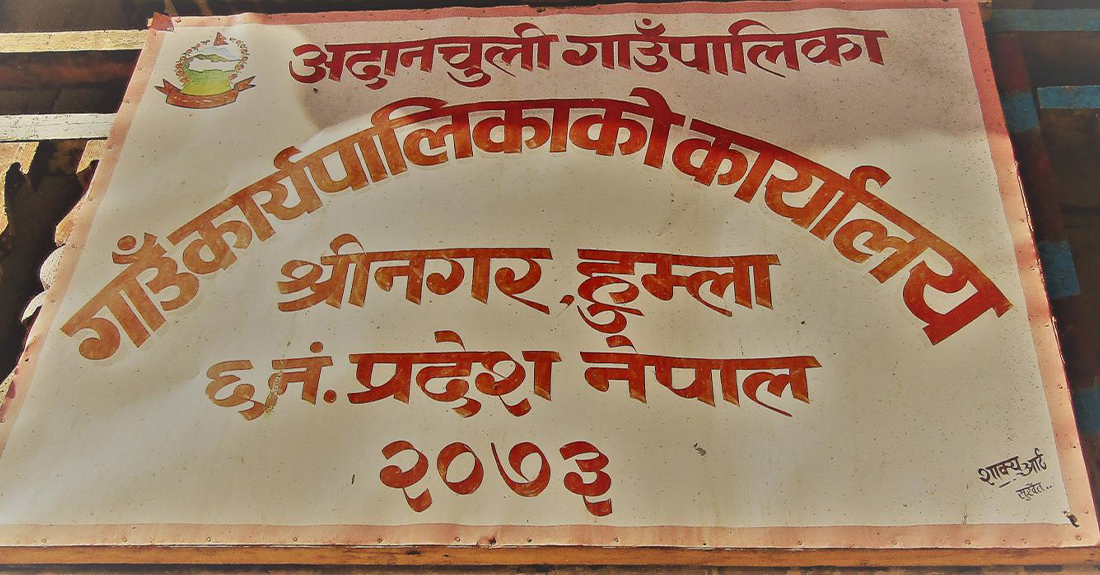 अदानचुली गाउँपालिका
गाउँकार्यपालिकाको कार्यालय
श्रीनगर, हुम्ला
६ नं. प्रदेश नेपाल
२०७३
शाक्य आर्ट
सुर्खेत..